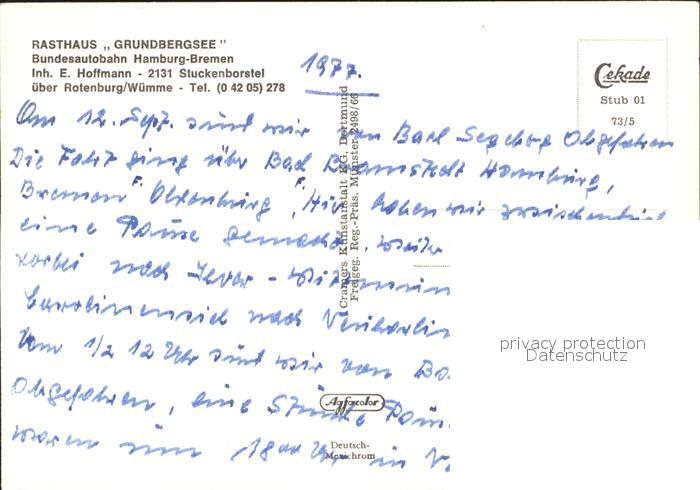 RASTHAUS „ GRUNDBERGSEE "
Bundesautobahn Hamburg-Bremen
Inh. E. Hoffmann - 2131 Stuckenborstel
über Rotenburg/Wümme - Tel. (0 42 05) 278
1977.
Cekade
Stub 01
73/5
Am 12. Sept. sind wir von Bad Segeberg Abgefahren
Die Fahrt ging über Bad Bramstedt Hamburg,
Bremen Oldenburg, Hir haben wir zwischendurch
eine Pause gemacht. weiter
vorbei nach Jever - Wittmun
Carolinensiel nach Neuharlin
Vom 1/2 12 Uhr sind wir von Ba
Abgefahren, eine Stunde Paus
waren um 18 Uhr in N
Cramers Kunstanstalt KG, Dortmund
Freigeg. Reg.-Präs. Münster 2498/66
privacy protection
Datenschutz
Agfacolor
Deutsch-
Mexichrom